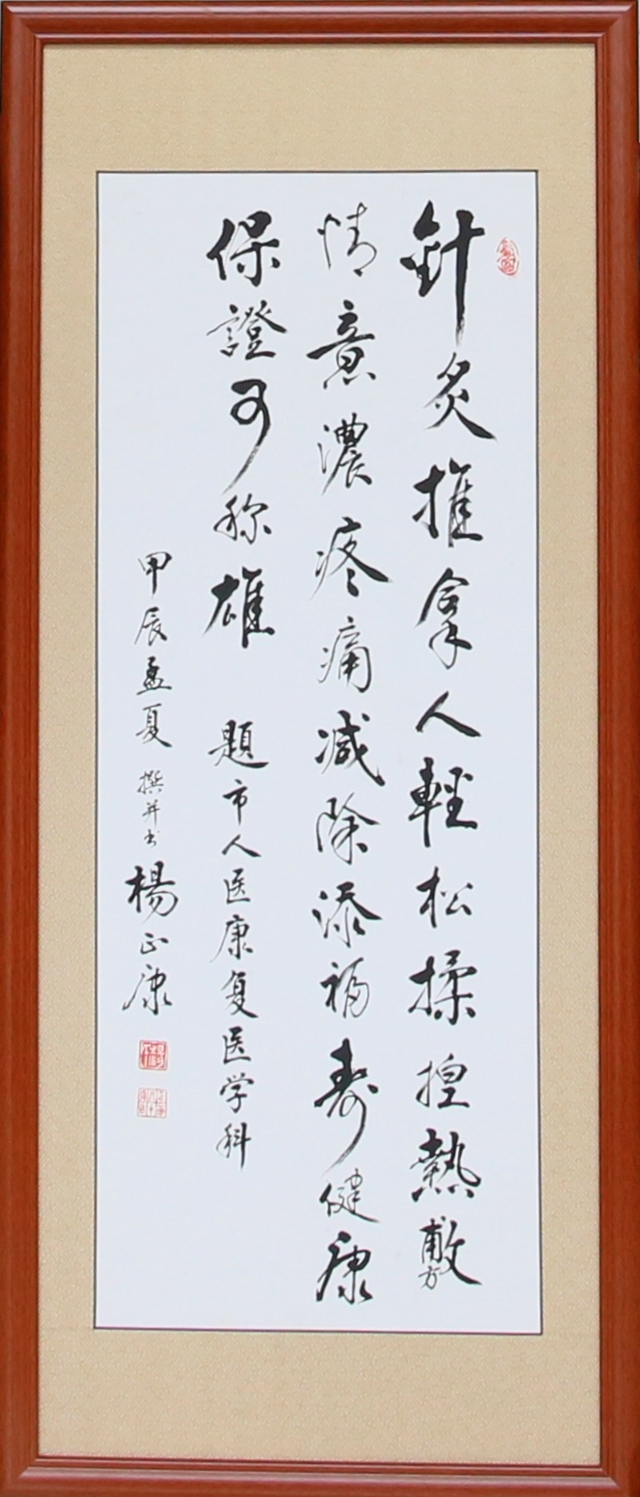 針灸推拿人輕松揉捏熱敷
情意濃疼痛减除添福寿健康
保證可称雄 題市人医康复医学科
甲辰孟夏 撰并书 楊正康